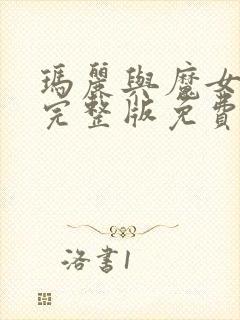 瑪麗與魔女
完整版免費
洛書1